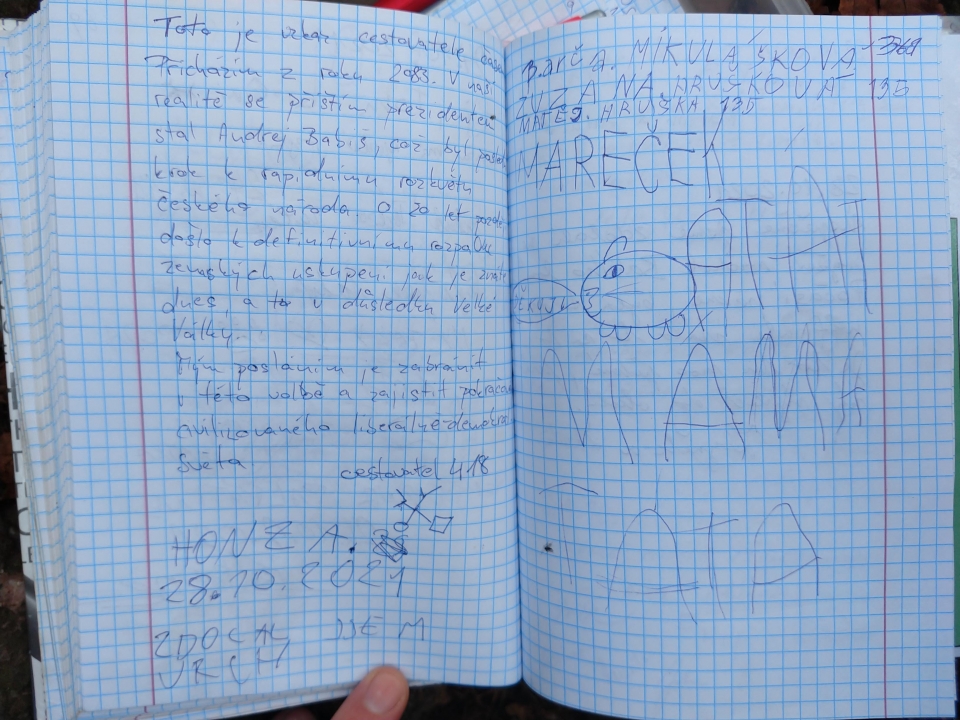 Toto je vzkaz cestovatele času
Přicházím z roku 2083. V naší
realitě se příštím prezidentem
stal Andrej Babiš, což byl
krok k rapidnímu rozkvětu
českého národa. O 20 let
došlo k definitivnímu rozpadu
zemských uskupení jak je
dnes, a to v důsledku Velké
Války.
Mým posláním je zabránit
v této volbě a zajistit
civilizovaného liberálně-demokra
světa
cestovatel 418
HONZA.
28.10.2021
ZDOLAL JSEM
VRCH
BARČA. MIKULÁŠKOVÁ
ZUZANA. HRUŠKOVÁ 135
MATĚJ. HRUŠKA. 135
MAREČEK
MAMA
TATA